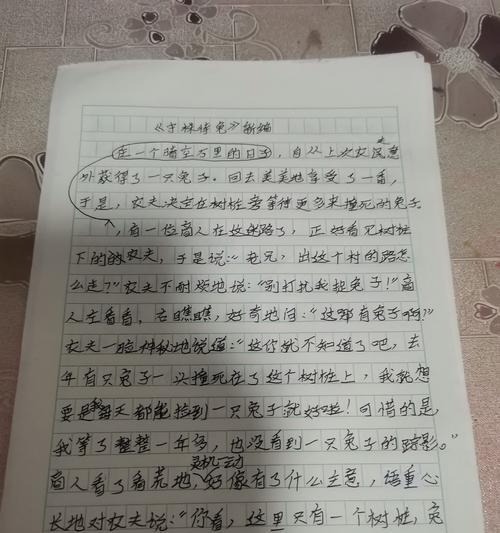 《守株待兔》新编
在一个晴空万里的日子，自从上次农民意
外获得了一只兔子。回去美美地享受了一番，
于是，农夫决定在树桩旁等待更多来撞死的兔子。
，有一位商人在这迷路了，正好看见树桩
下的的农夫，于是说：“老兄，出这个村的路怎
么走？”农夫不耐烦地说：“别打扰我捉兔子！”商
人左看看，右瞧瞧，好奇地问：“这那有兔子啊？”
农夫一脸神秘地说道：“这你就不知道了吧，去
年有只兔子一头撞死在了这个树桩上，我就想
要是我每天都能捡到一只兔子就好啦！可惜的是，
我等了整整一年多，也没看到一只兔子的踪影。”
灵机一动
商人看了看荒地，好像有了什么主意，语重心
长地对农夫说：“你看，这里只有一个树桩，兔